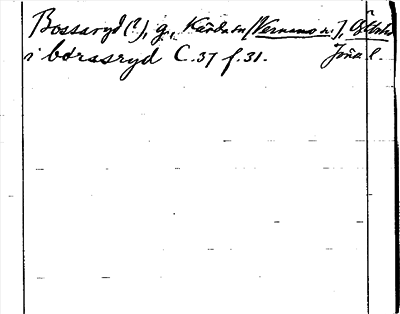 Bossaryd (?), g., Kärda sn [Värnamo n.], Östbo hd
i borassryd C. 37 f. 31. Jön. l.